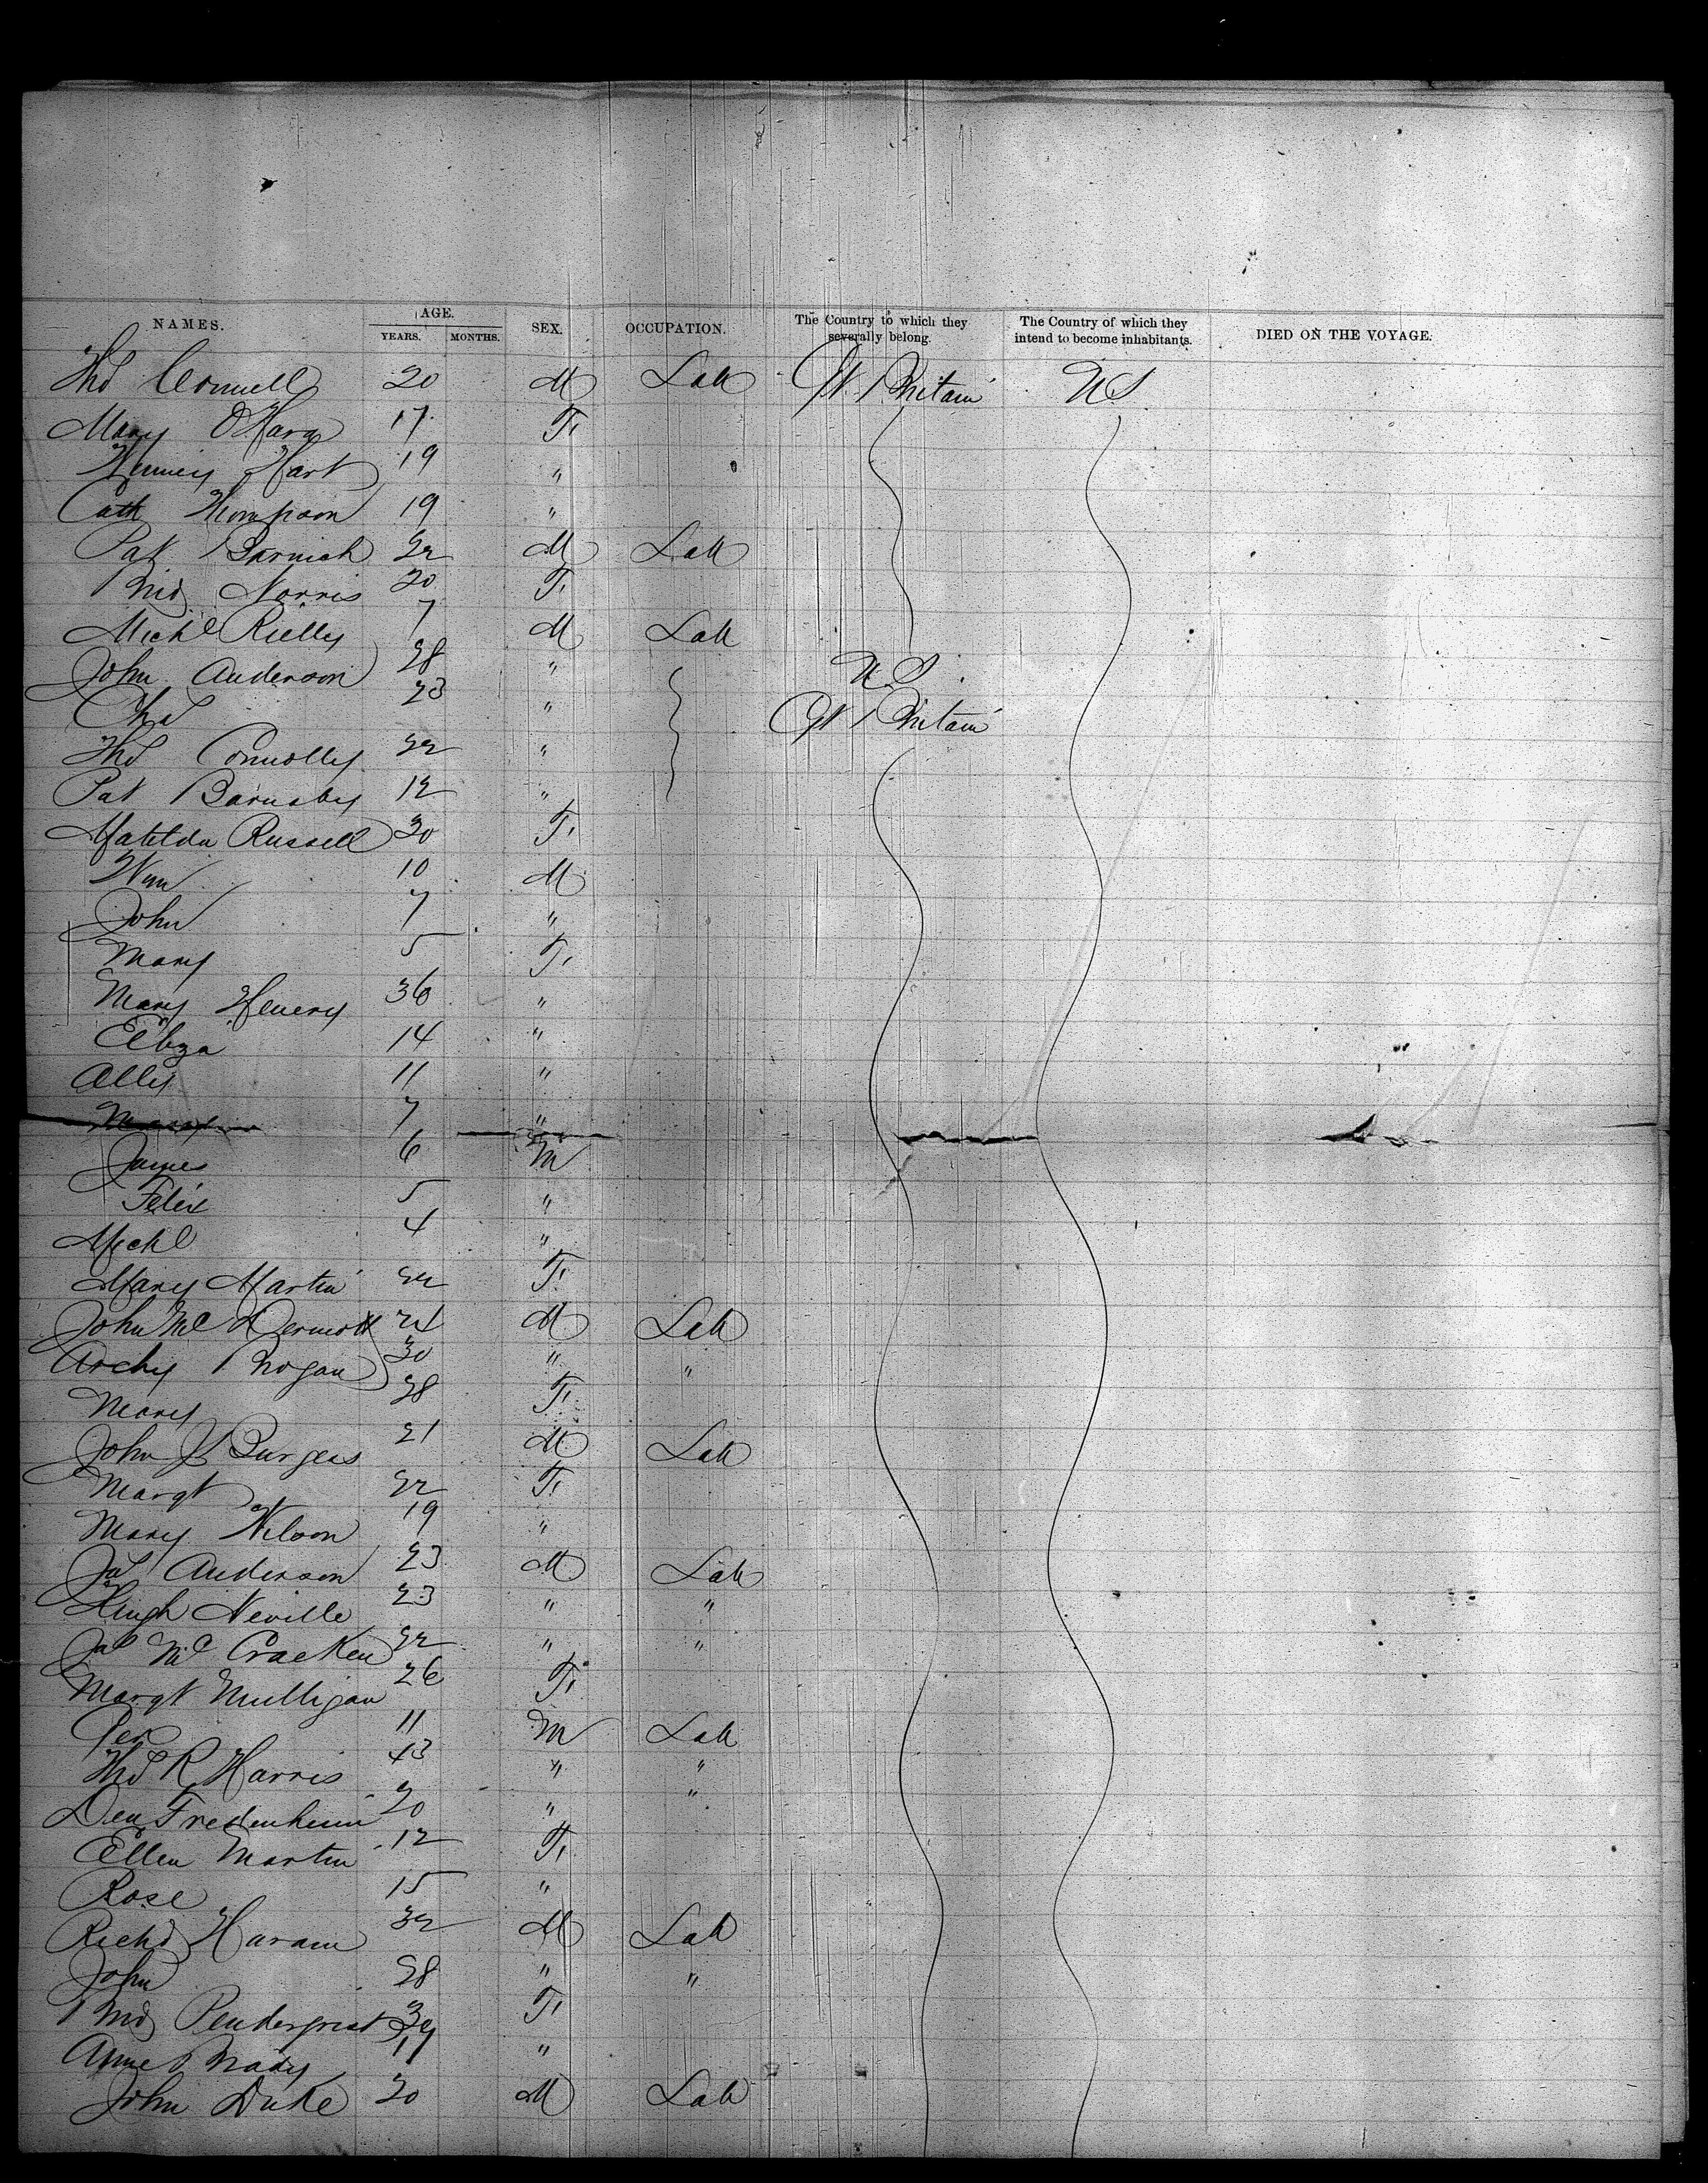 NAMES. AGE. YEARS. MONTHS. SEX. OCCUPATION. The Country to which they severally belong. The Country of which they intend to become inhabitants. DIED ON THE VOYAGE.
Thos Connell 20 M Lab Gt Britain US
Mary O'Hara 17 F
Hart 19 "
Cath Thompson 19 "
Pat 22 M Lab
Brid Norris 20 F
Michl Rielly 7 M Lab
John Anderson 28 " US
Chs 23 " Gt Britain
Thos Connolly 22 "
Pat Barnaby 12 "
Matilda Russell 30 F
Wm 10 M
John 7 "
Mary 5 F
Mary Henery 36 "
Eliza 14 "
Ally 11 "
Mary 7 "
James 6 M
Felix 5 "
Michl 4 "
Mary Martin 22 F
John McDermott 24 M Lab
Archy Brogan 30 " "
Mary 28 F
John J Burgess 21 M Lab
Margt 22 F
Mary Wilson 19 "
Jas Anderson 23 M Lab
Hugh Neville 23 " "
Jas McCracken 22 " "
Margt Mulligan 26 F
11 M Lab
Thos R Harris 43 " "
20 " "
Ellen Martin 12 F
Rose 15 "
Richd Haram 32 M Lab
John 28 " "
Brid Pendergrist F
Anne Brady 17 "
John Duke 20 M Lab